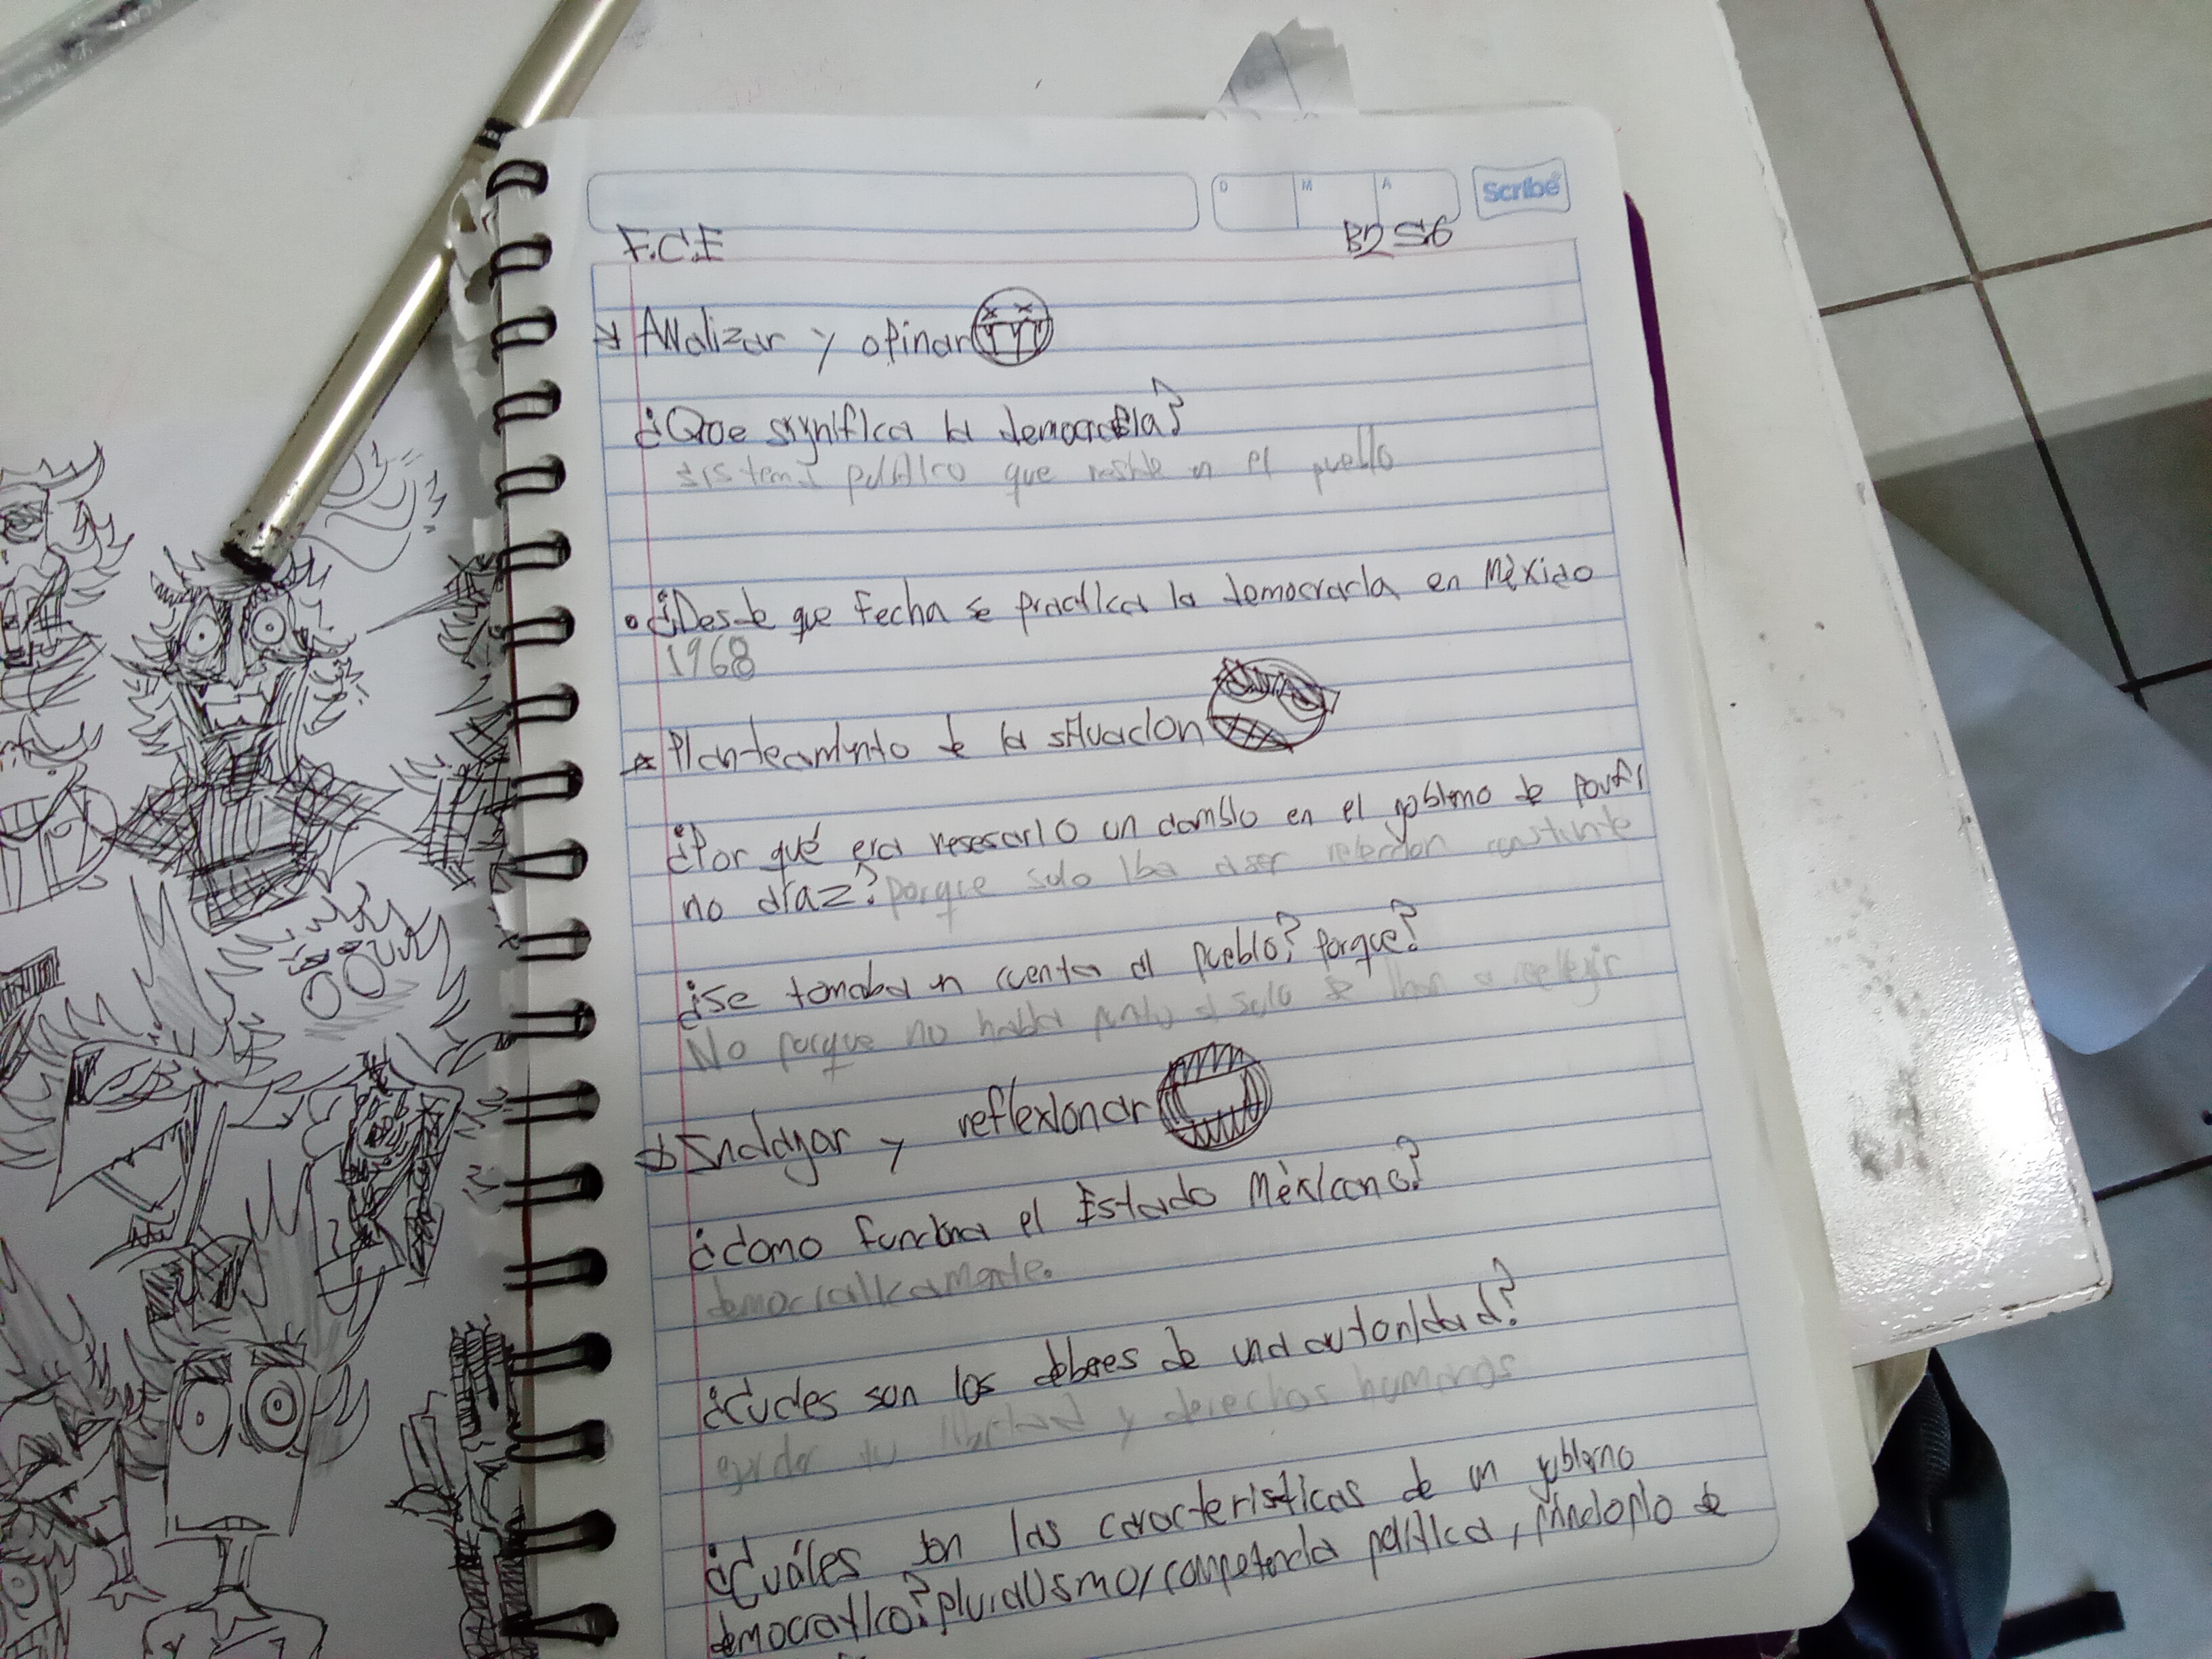 D M A
Scribe
F.C.E B2 S6
Analizar y opinar
¿Que significa la democracia?
sistema politico que reside en el pueblo
¿Desde que fecha se practica la democracia en México
1968
Planteamiento de la situacion
¿Por qué era nesesario un cambio en el gobierno de porfi
no díaz? porque solo iba aser relección constante
¿se tomaba en cuenta al pueblo? porque?
No porque no habia solo se iban a
Indagar y reflexionar
¿como funciona el Estado Méxicano?
democraticamente.
¿Cuales son los deberes de una autoridad?
tu libertad y derechos humanos
¿Cuáles son las caracteristicas de un gobierno
democratico? pluralismo, competencia política, principio de